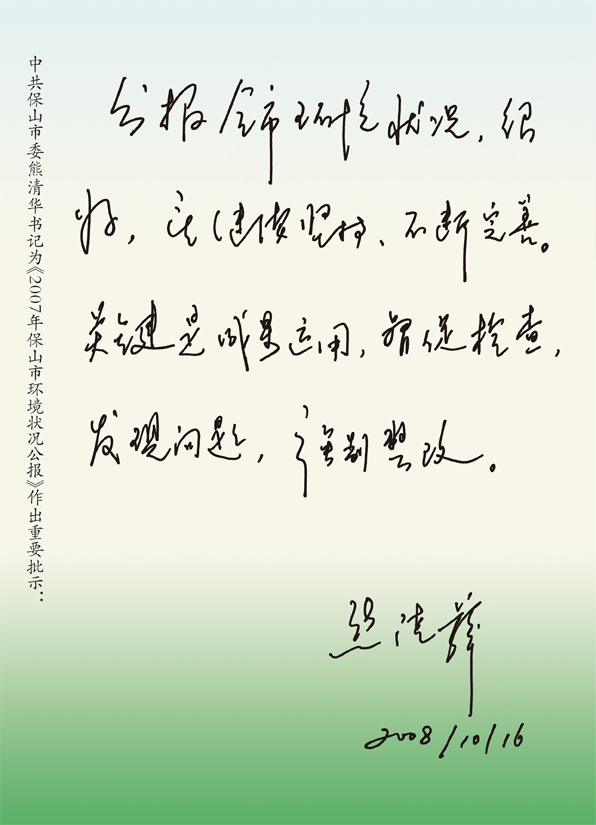 中共保山市委熊清华书记为《2007年保山市环境状况公报》作出重要批示：
公报全市环境状况，很
好，要继续坚持、不断完善。
关键是成果运用，督促检查，
发现问题，限期整改。
熊清华
2008/10/16